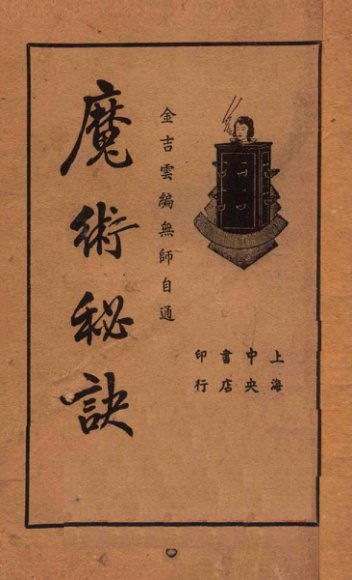 魔術秘訣
金吉雲編無師自通
上海
中央
書店
印行